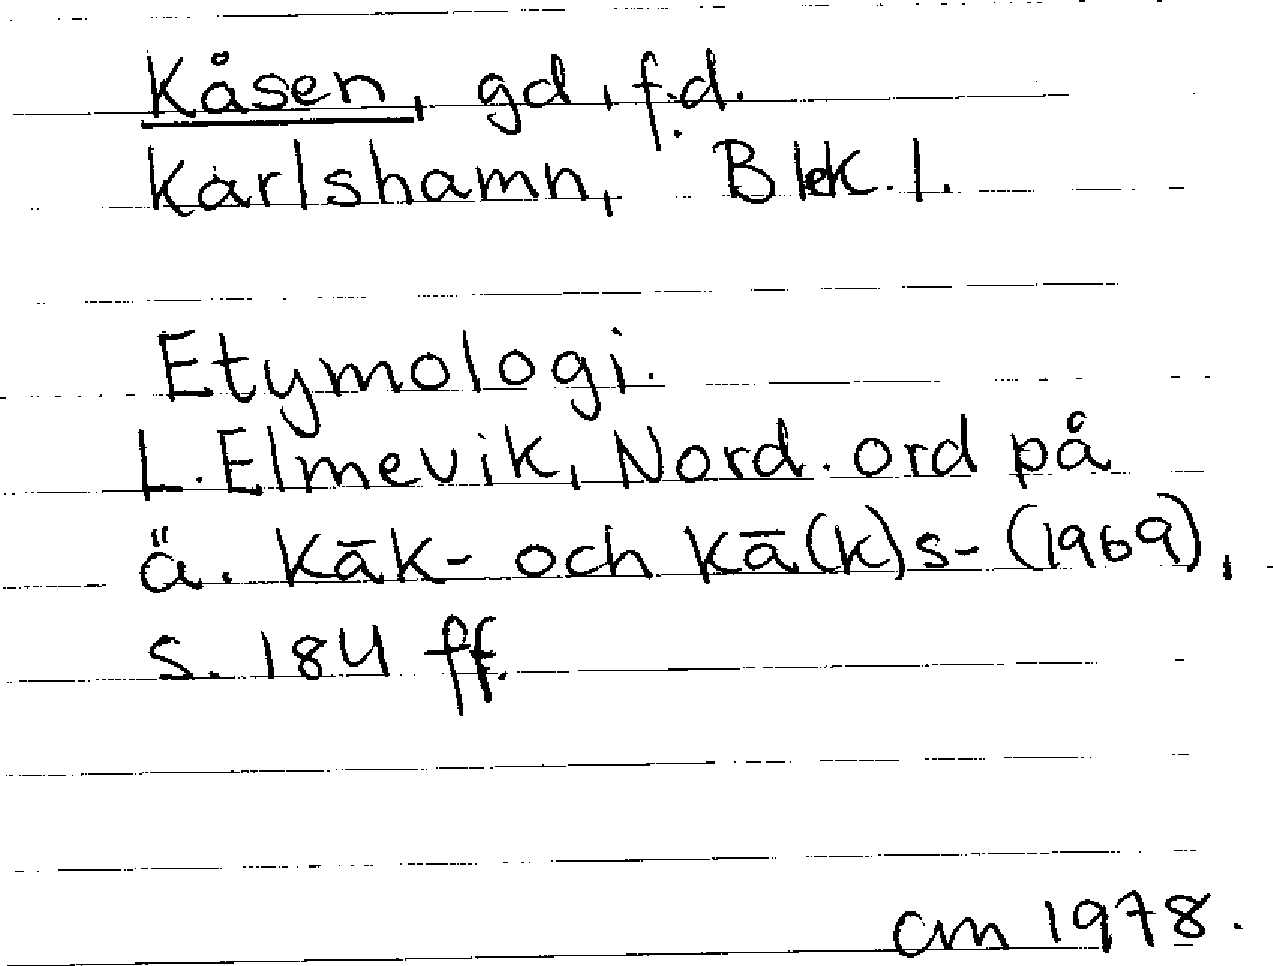 Kåsen, gd, f.d.
Karlshamn, Blek. l.
Etymologi.
L. Elmevik, Nord. ord på
ä. kāk- och kā(k)s- (1969),
s. 184 ff.
am 1978.